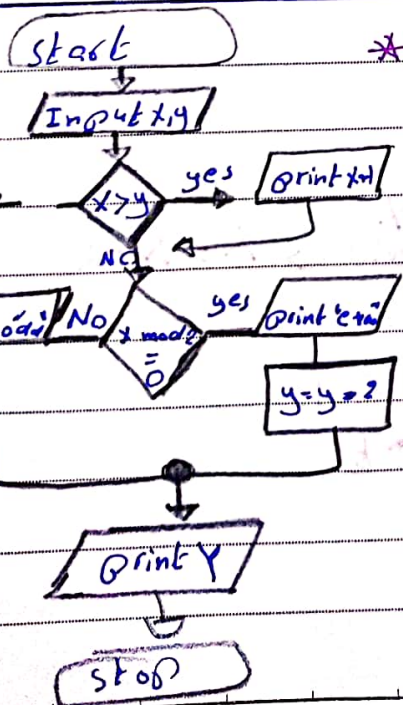 Start
Input x,y
x>y
yes
print x+1
No
"odd"
No
x mod 2
=
0
yes
print "even"
y=y-2
print Y
stop